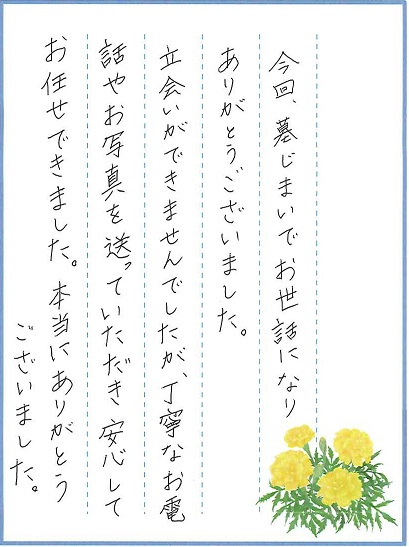 今回、墓じまいでお世話になり
ありがとうございました。
立会いができませんでしたが、丁寧なお電
話やお写真を送っていただき安心して
お任せできました。本当にありがとう
ございました。